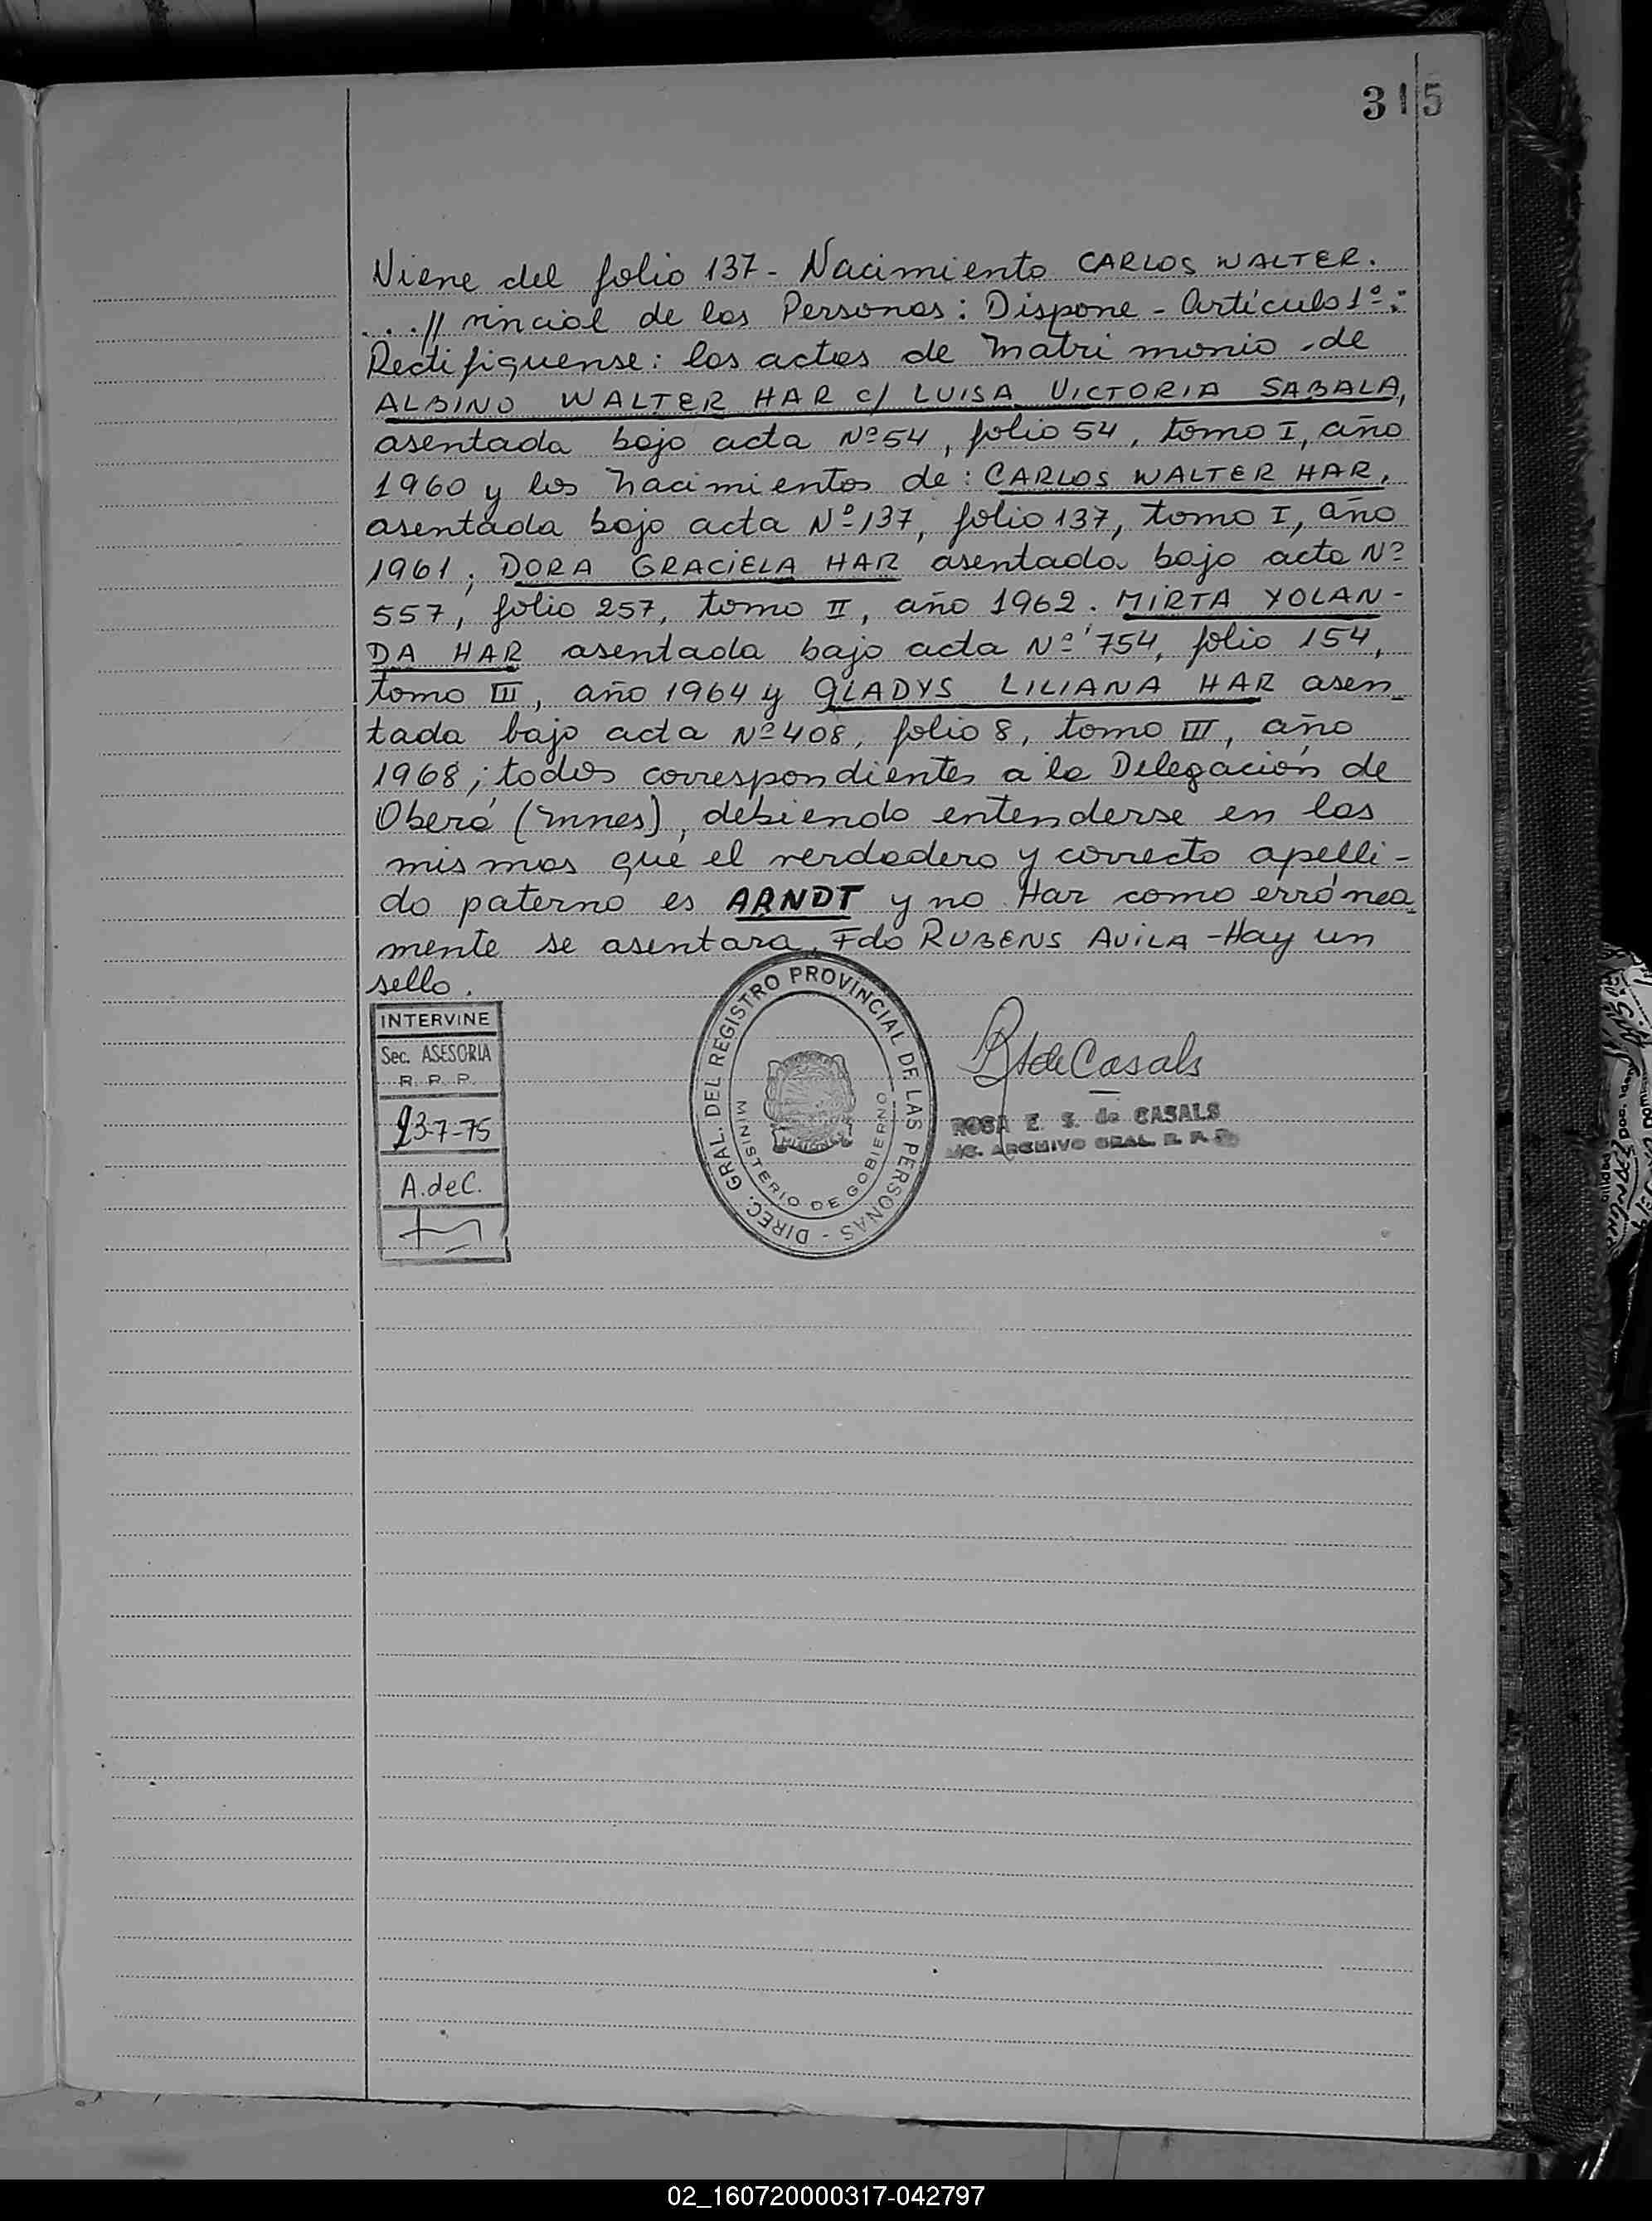 315
Viene del folio 137 - Nacimiento CARLOS WALTER.
...// vincial de las Personas: Dispone - Artículo 1º:
Rectifiquense: las actas de matrimonio de
ALBINO WALTER HAR c/ LUISA VICTORIA SABALA,
asentada bajo acta Nº 54, folio 54, tomo I, año
1960 y los nacimientos de: CARLOS WALTER HAR,
asentada bajo acta Nº 137, folio 137, tomo I, año
1961; DORA GRACIELA HAR asentada bajo acta Nº
557, folio 257, tomo II, año 1962. MIRTA YOLAN-
DA HAR asentada bajo acta Nº 754, folio 154,
tomo III, año 1964 y GLADYS LILIANA HAR asen-
tada bajo acta Nº 408, folio 8, tomo III, año
1968; todos correspondientes a la Delegación de
Oberá (Mnes), debiendo entenderse en las
mismas que el verdadero y correcto apelli-
do paterno es ARNDT y no Har como errónea
mente se asentara. Fdo RUBENS AVILA - Hay un
sello.
INTERVINE
Sec. ASESORIA
R. P. P.
23-7-75
A. de C.
DIREC. GRAL. DEL REGISTRO PROVINCIAL DE LAS PERSONAS -
MINISTERIO DE GOBIERNO
de Casals
ROSA E. S. de CASALS
ARCHIVO GRAL. R. P. P.
02_160720000317-042797